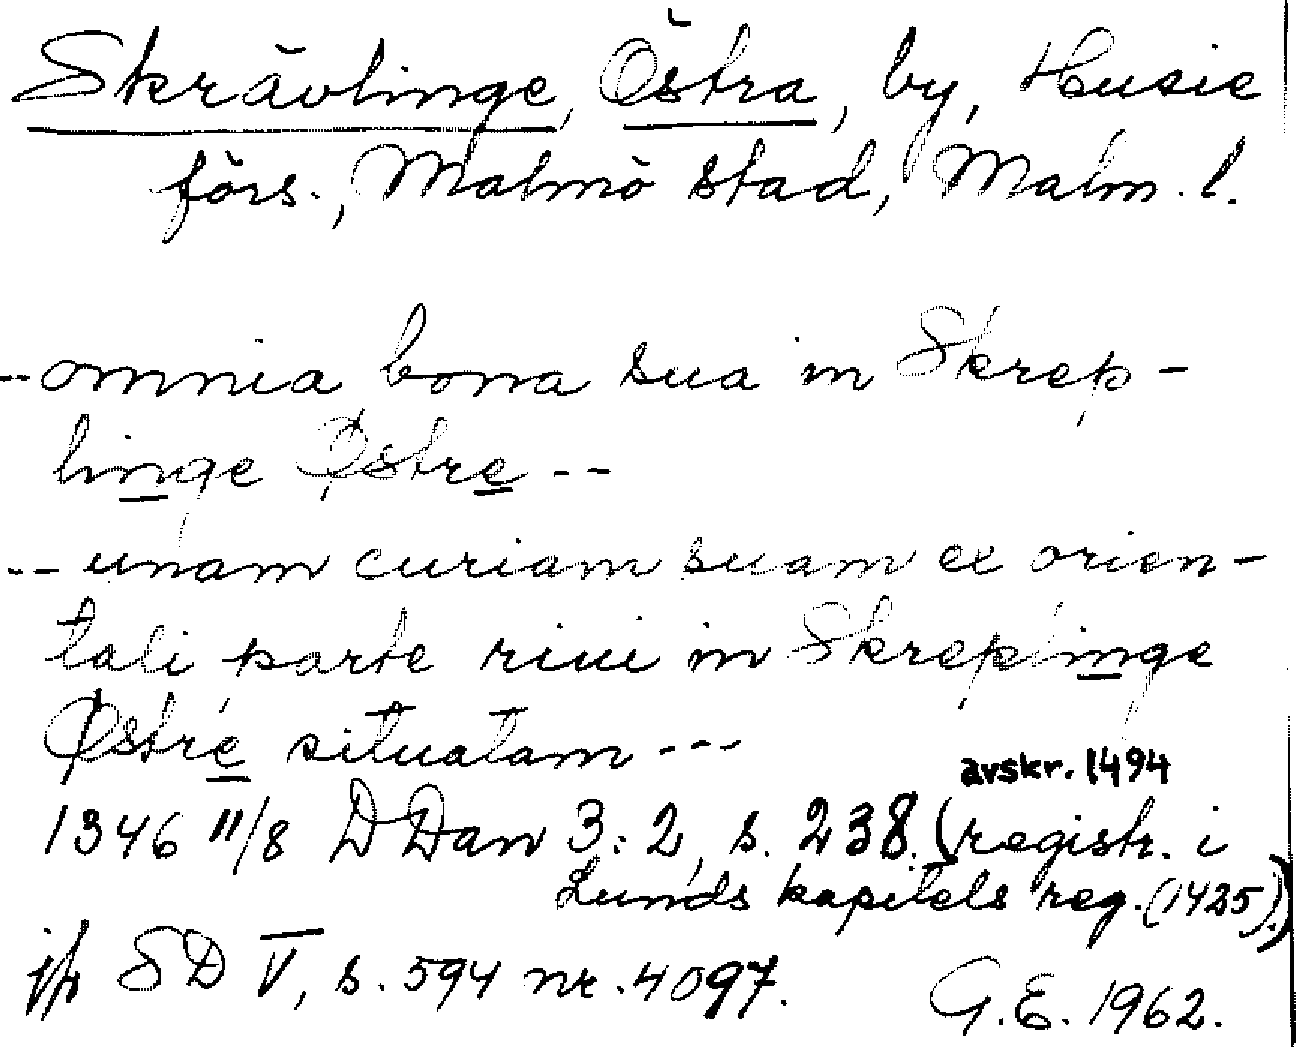 Skrävlinge, Östra, by, Husie
förs., Malmö stad, Malm. l.
-- omnia bona sua in Skrep-
linge Østre --
-- unam curiam suam ex orien-
tali parte riui in Skreplinge
Østre situatam ---
avskr. 1494
1346 11/8 DDan 3:2, s. 238. (registr. i
Lunds kapitels reg. (1425).)
jfr SD V, s. 594 nr. 4097.
G.E. 1962.